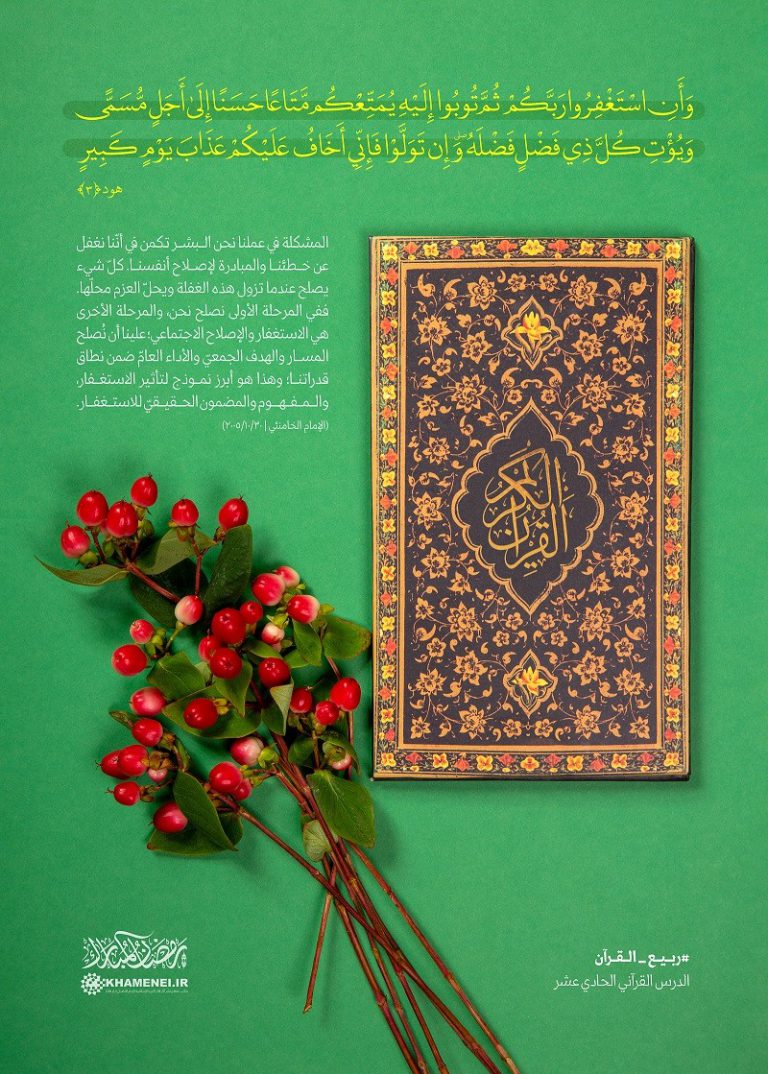 وَأَنِ اسْتَغْفِرُوا رَبَّكُمْ ثُمَّ تُوبُوا إِلَيْهِ يُمَتِّعْكُم مَّتَاعًا حَسَنًا إِلَىٰ أَجَلٍ مُّسَمًّى
وَيُؤْتِ كُلَّ ذِي فَضْلٍ فَضْلَهُ ۖ وَإِن تَوَلَّوْا فَإِنِّي أَخَافُ عَلَيْكُمْ عَذَابَ يَوْمٍ كَبِيرٍ
هود ﴿٣﴾
المشكلة في عملنا نحن البشر تكمن في أنّنا نغفل
عن خطئنا والمبادرة لإصلاح أنفسنا. كلّ شيء
يصلح عندما تزول هذه الغفلة ويحلّ العزم محلّها.
ففي المرحلة الأولى نصلح نحن، والمرحلة الأخرى
هي الاستغفار والإصلاح الاجتماعي؛ علينا أن نُصلح
المسار والهدف الجمعيّ والأداء العامّ ضمن نطاق
قدراتنا؛ وهذا هو أبرز نموذج لتأثير الاستغفار،
والمفهوم والمضمون الحقيقيّ للاستغفار.
(الإمام الخامنئي | ٢٠٠٥/١٠/٣٠)
القرآن الكريم
#ربيع_القرآن
الدرس القرآني الحادي عشر
رمضان المبارك
KHAMENEI.IR